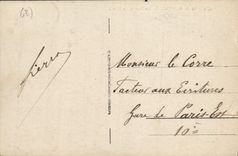 (62)
Pierre
Monsieur le Corre
Facteur aux Ecritures
Gare de Paris Est
10e